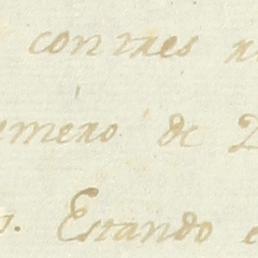 con tres
mero de
Estando